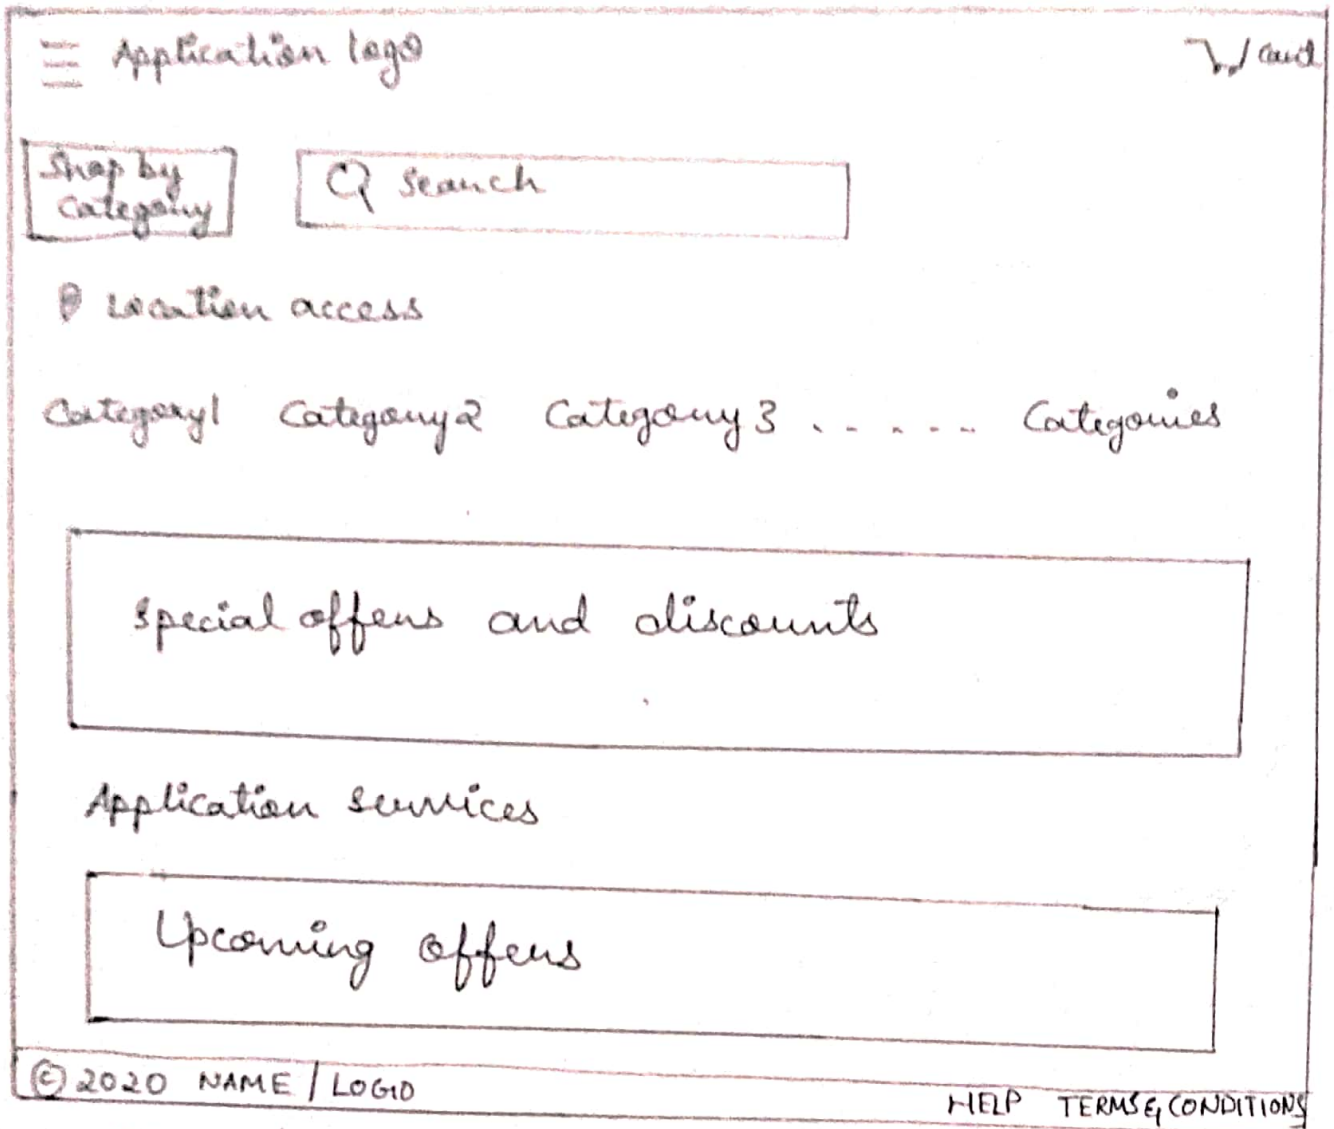 Application logo
Card
Shop by
Category
Search
Location access
Category1 Category2 Category3 ...... Categories
Special offers and discounts
Application services
Upcoming offers
© 2020 NAME / LOGO
HELP TERMS & CONDITIONS